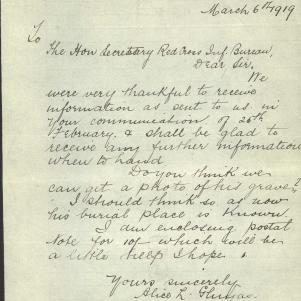 March 6th 1919
To
The Hon Secretary Red Cross Inf. Bureau,
Dear Sir,
We
were very thankful to receive
information as sent to us in
your communication of 26th
February. & shall be glad to
receive any further information
when to hand
Do you think we
can get a photo of his grave?
I should think so as now
his burial place is known
I am enclosing postal
Note for 10/- which will be
a little help I hope.
Yours sincerely
Alice L.